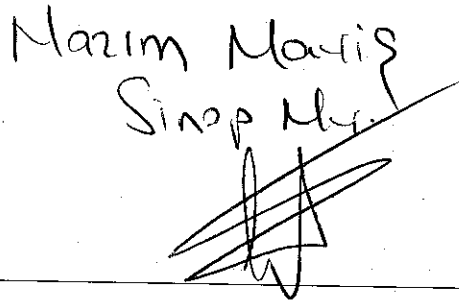 Nazım Maviş
Sinop Mv.